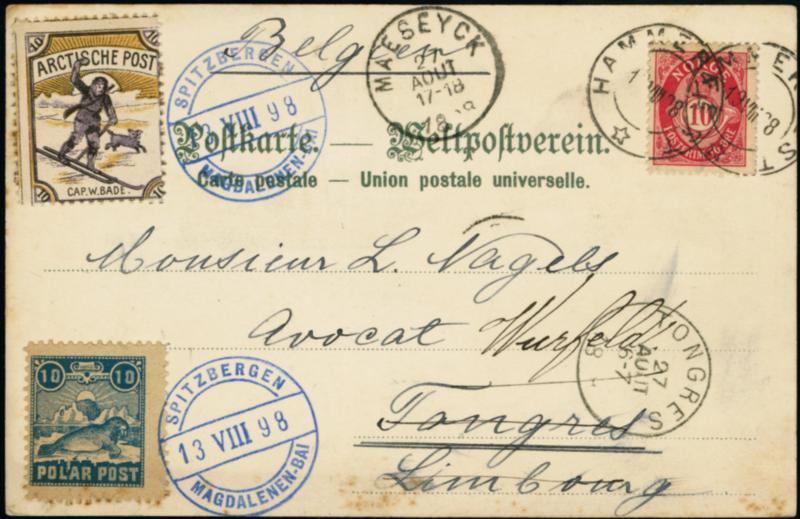 10 10
ARCTISCHE POST
CAP. W. BADE.
10 10
SPITZBERGEN
VIII 98
MAGDALENEN-BAI
Belgien
MAESEYCK
27
AOUT
17-18
HAMMERFEST
NORGE
10
POSTFRIM 10 ØRE
Postkarte. — Weltpostverein.
Carte postale — Union postale universelle.
Monsieur L. Nagels
Avocat Wurfeld.
Tongres
Limbourg
TONGRES
27
AOUT
6-7
10 10
POLAR POST
SPITZBERGEN
13 VIII 98
MAGDALENEN-BAI